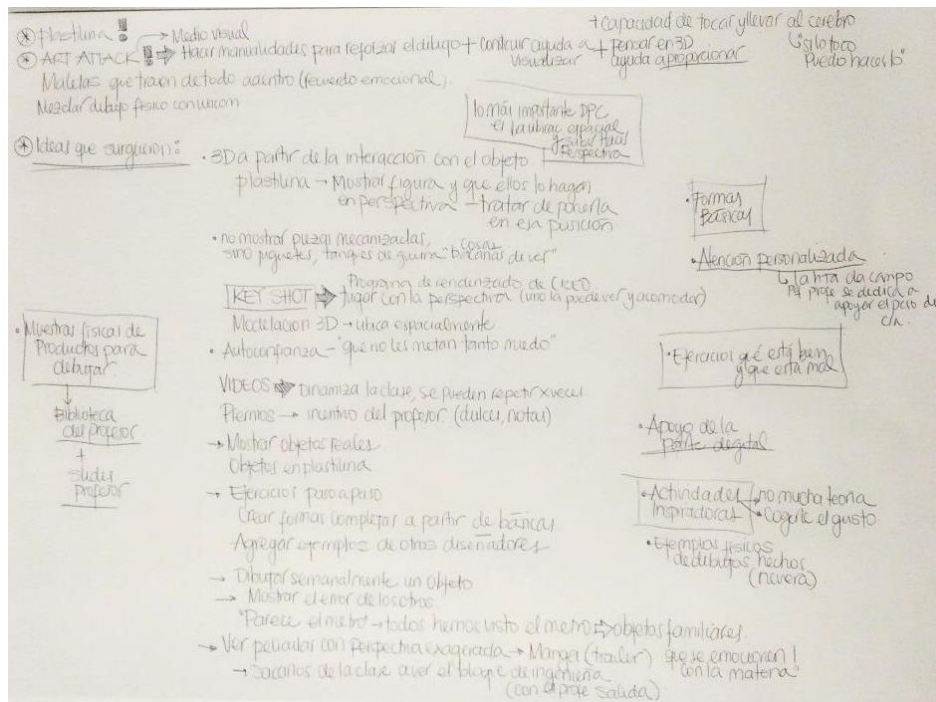 + capacidad de tocar y llevar al cerebro
↳ "si lo toco
puedo hacerlo"
⊛ Plastilina !
→ Medio visual
⊛ ART ATTACK ! ⇒ Hacer manualidades para reforzar el dibujo + construir ayuda a + pensar en 3D
visualizar ayuda a proporcionar
Maletas que traen de todo adentro (recuerdo emocional).
Mezclar dibujo físico con
lo más importante DPC
es la ubicac espacial
y saber hacer
perspectiva
⊛ Ideas que surgieron:
• 3D a partir de la interacción con el objeto
plastilina → Mostrar figura y que ellos lo hagan
en perspectiva – tratar de ponerla
en esa posición
• no mostrar piezas mecanizadas,
sino juguetes, tanques de guerra "cosas
bacanas de ver"
Programa de renderizado de CREO
KEY SHOT ⇒ jugar con la perspectiva (uno la puede ver y acomodar)
Modelación 3D → ubica espacialmente
• Autoconfianza – "que no les metan tanto miedo"
VIDEOS ⇒ Dinamiza la clase, se pueden repetir x veces
Premios → incentivo del profesor (dulces, notas)
→ Mostrar objetos reales
Objetos en plastilina
→ Ejercicios paso a paso
Crear formas completas a partir de básicas
Agregar ejemplos de otros diseñadores
→ Dibujar semanalmente un objeto
→ Mostrar el error de los otros
"Parece el metro → todos hemos visto el metro ⇒ objetos familiares
→ Ver películas con perspectiva exagerada → Manga (trailer) que se emocionen !
con la materia"
→ Sacarlos de la clase a ver el bloque de ingeniería
(con el profe salida)
• Muestras físicas de
Productos para
dibujar
↓
Biblioteca
del profesor
+
slides
profesor
• Formas
Básicas
• Atención personalizada
profe se dedica a
apoyar el de
c/u.
• Ejercicios qué está bien
y que está mal
• Apoyo de la
parte digital
• Actividades no mucha teoría
Inspiradoras Cogerle el gusto
• Ejemplos físicos
de dibujos hechos
(nevera)